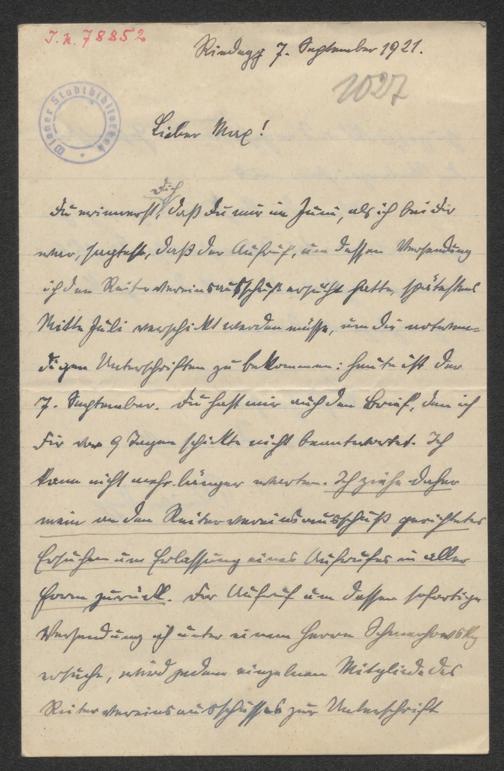 I. N. 78852
Rindegg 7. September 1921.
1027
Wiener Stadtbibliothek
Lieber Max!
dich
Du erinnerst, daß du mir im Juni, als ich bei dir
war, sagtest, daß der Aufruf, um dessen Versendung
ich den Reitervereinsausschuß ersucht hatte, spätestens
Mitte Juli verschickt werden müsse, um die notwen-
digen Unterschriften zu bekommen: heute ist der
7. September. Du hast mir auch den Brief, den ich
dir vor 9 Tagen schickte nicht beantwortet. Ich
kann nicht mehr länger warten. Ich ziehe daher
mein an den Reitervereinsausschuß gerichtetes
Ersuchen um Erlassung eines Aufrufes in aller
Form zurück. Der Aufruf um dessen sofortige
Versendung ich unter einem Herrn
ersuche, wird jedem einzelnen Mitgliede des
Reitervereinsausschusses zur Unterschrift